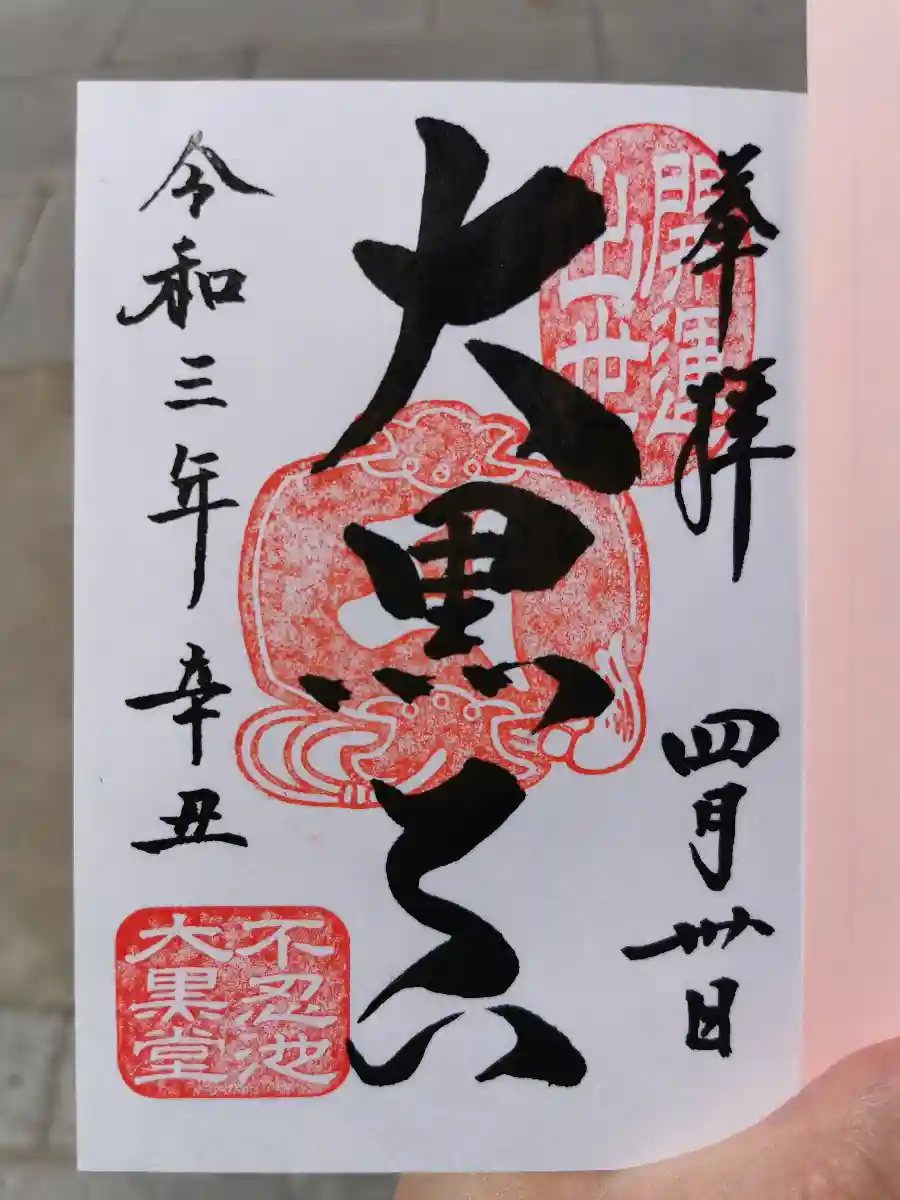 奉拝
四月卅日
開運
出世
大黒天
令和三年辛丑
不忍池
大黒堂